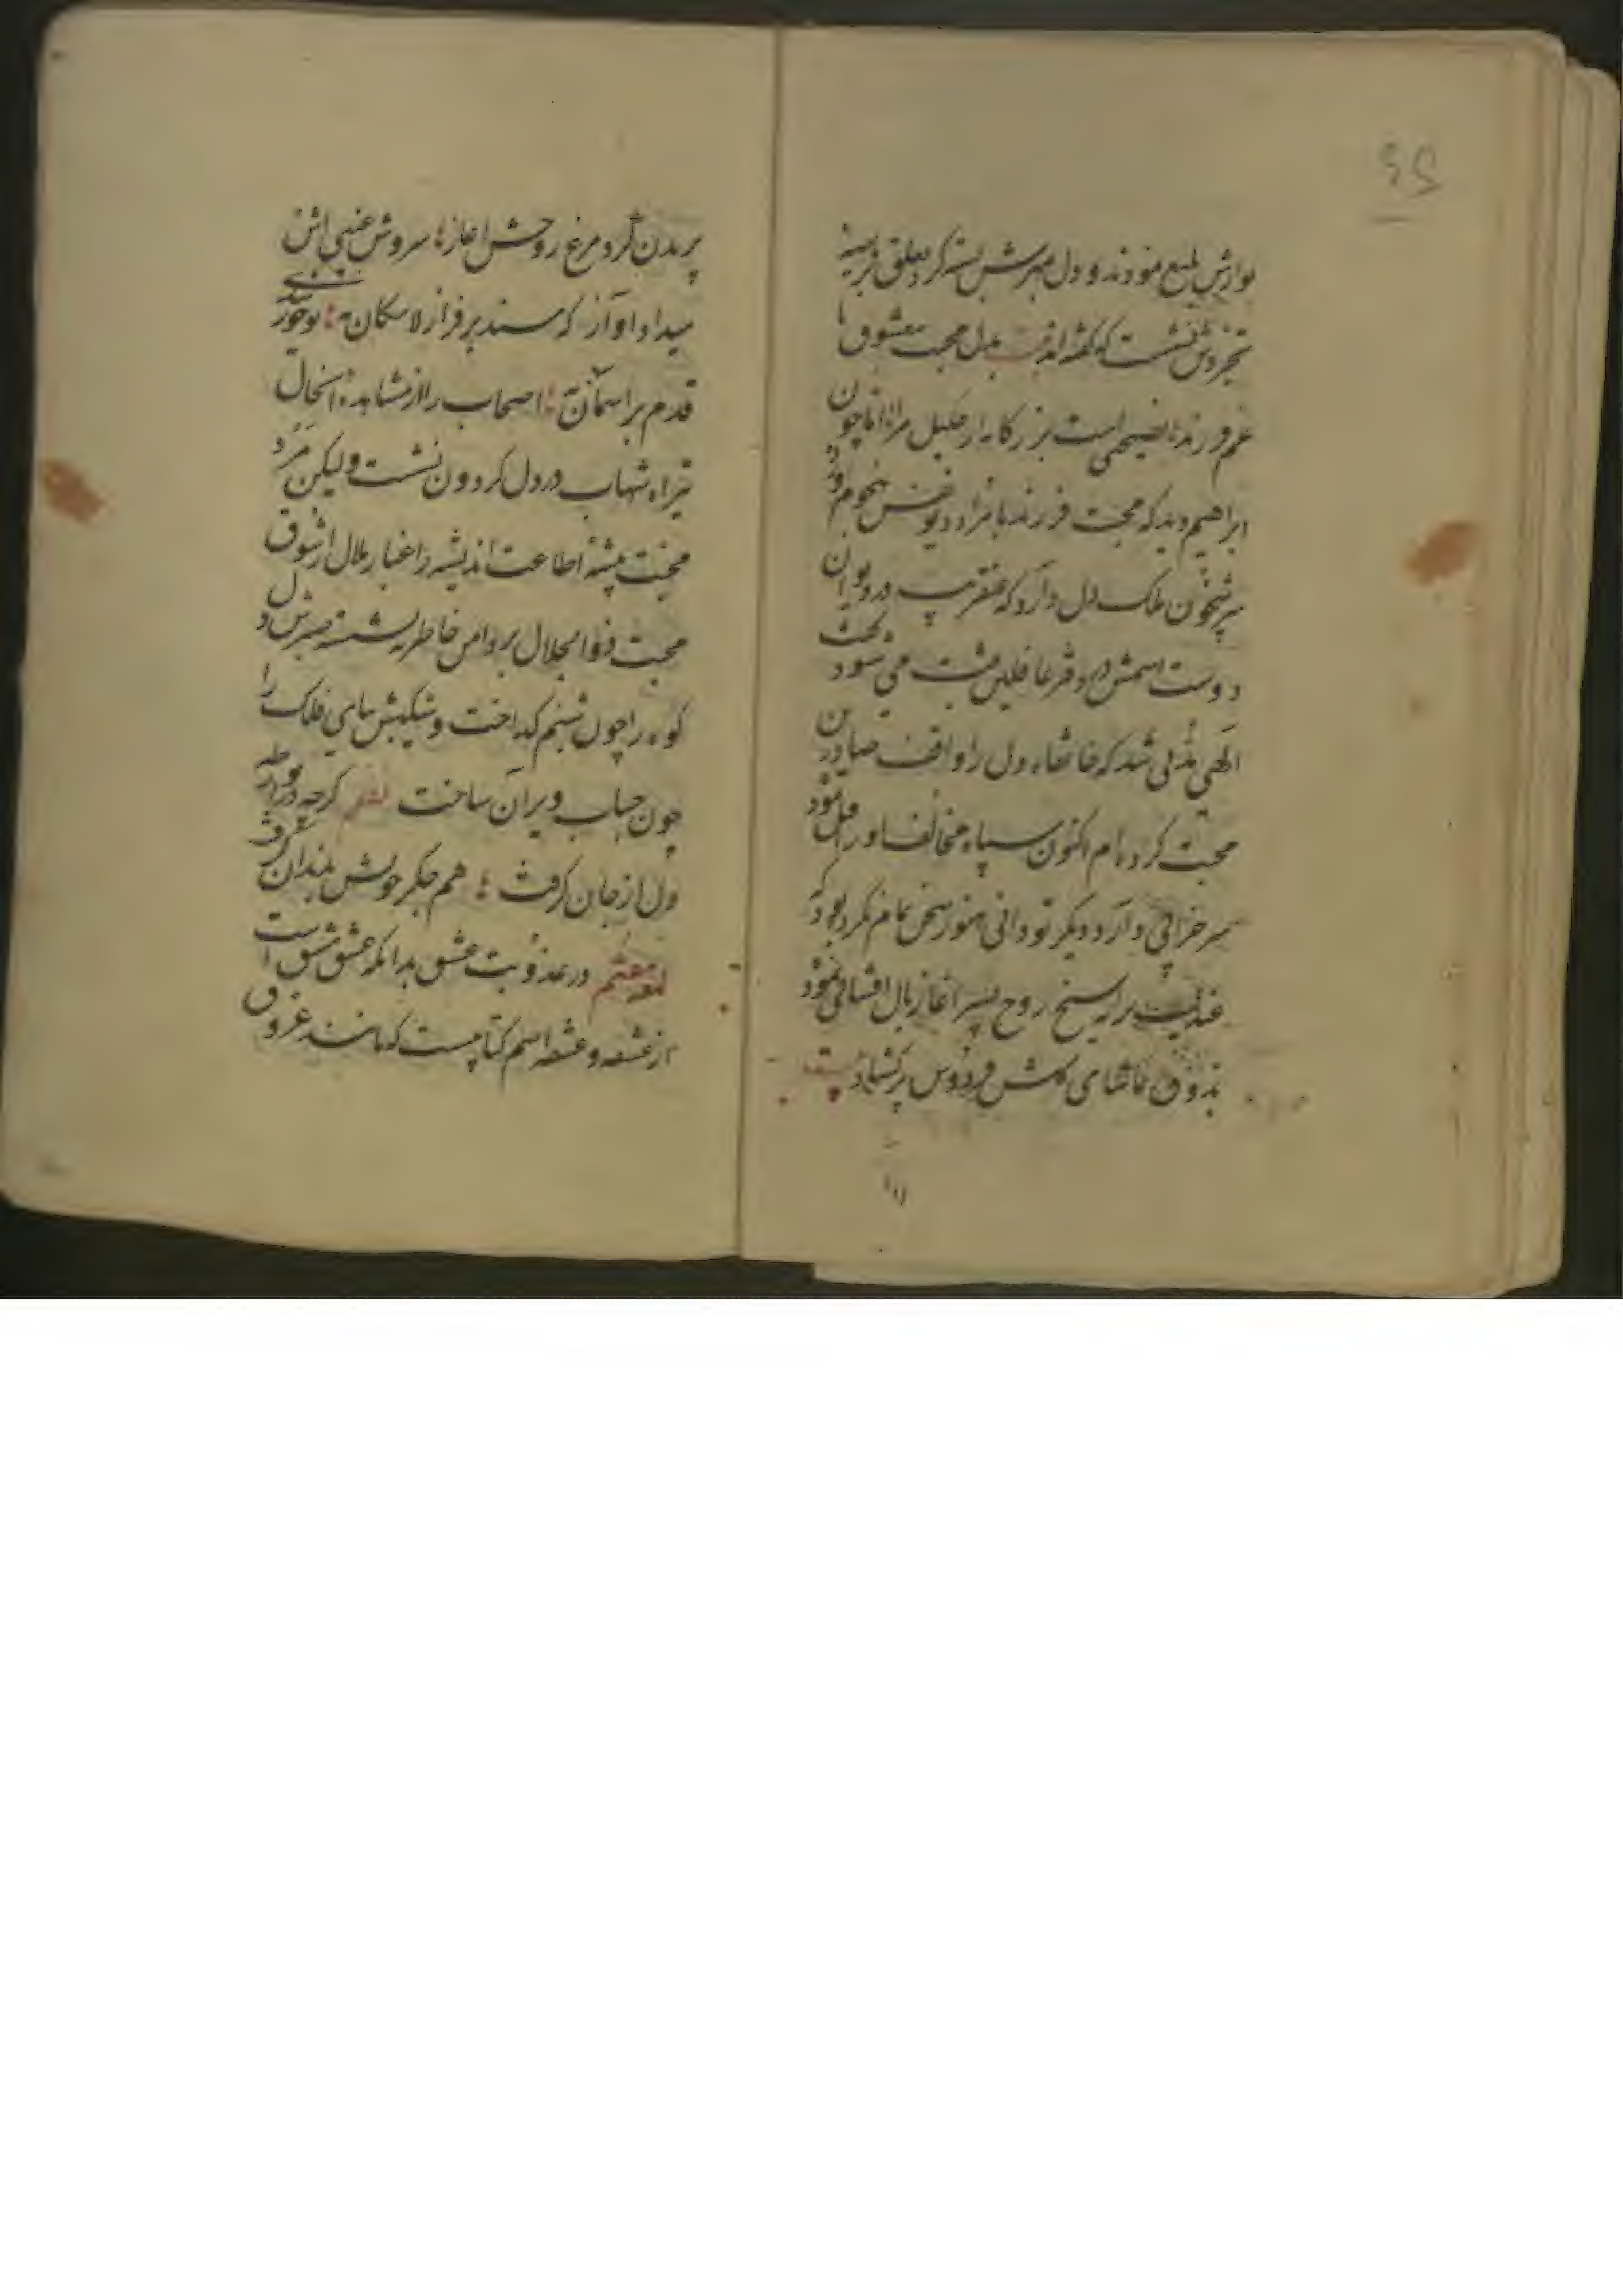 نوازش بلیغ نمودند و دل مهرش بسته کرد تعلق بر سینه
تجردش نشست که گفته‌اند بیت بدل محبت معشوق با
غم فرزند نصیحتی است بزرگانه از خلیل مرا اما چون
ابراهیم دید که محبت فرزند بافراد دیو نفس هجوم آورد
سر شبخون ملک دل دارد که عنقریب در دیوان
دوست اسمش در دفتر غافلین ثبت می شود بحث
الهی ملتجی شد که خانقاه دل را وقف صادرین
محبت کرده‌ام اکنون سپاه مخالف او را مل نمود
سر خرابی دارد دیگر تو دانی هنوز سخن تمام نکرده بود که
عندلیب سدره سنخ روح پسر آغاز بال افشانی نمود
بذوق تماشای گلشن فردوس پر گشاد بیت
پریدن کرد مرغ روحش آغاز سروش غیبی اش
میداد آواز که مسند بر فراز لامکان نه تو خورشیدی
قدم بر آسمان نه اصحاب را از مشاهده آنحال
تیر آه شهاب در دل گردون نشست ولیکن مرد
محبت پیشه اطاعت اندیشه را غبار ملال از شوق
محبت ذوالجلال بر دامن خاطر ننشسته صبرش دل
کوه را چون شبنم گداخت و شکیبش بنای فلک را
چون حباب ویران ساخت شعر گرچه در آن واقعه
دل از جان گرفت هم جگر خویش بدندان گرفت
لمعه هفتم در عذوبت عشق بدانکه عشق مشتق است
از عشقه و عشقه اسم گیاهیست که مانند عروق